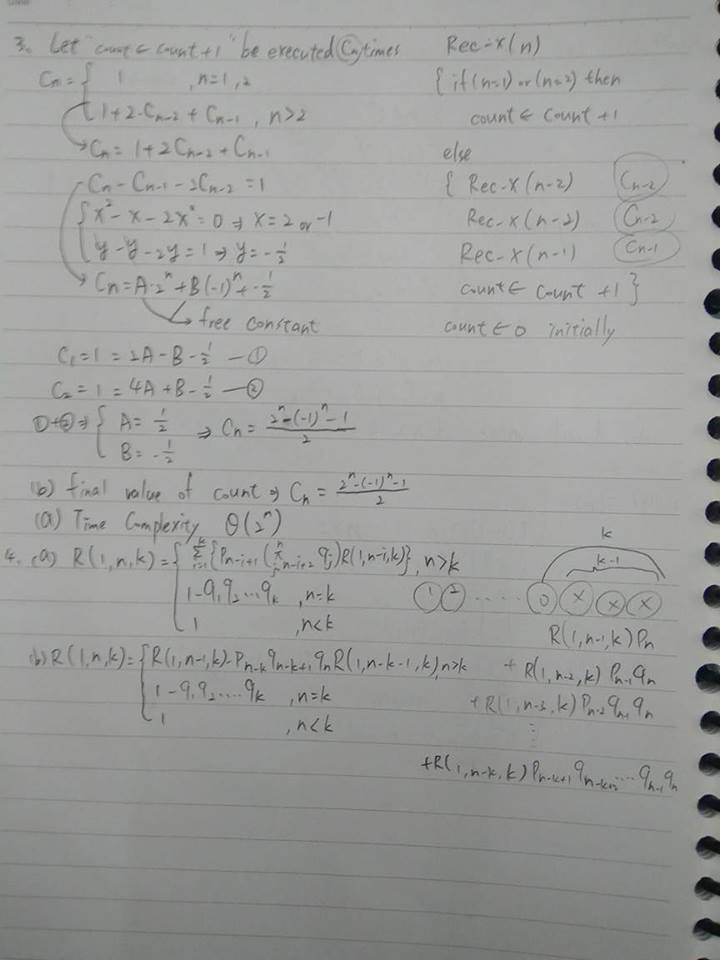 3. Let "count ← count +1" be executed Cn times
Cn = { 1 , n=1, 2
1+2·Cn-2 + Cn-1 , n>2
→ Cn = 1+2Cn-2 + Cn-1
Cn - Cn-1 - 2Cn-2 = 1
{ x² - x - 2x⁰ = 0 ⇒ x = 2 or -1
y - y - 2y = 1 ⇒ y = -1/2
→ Cn = A·2ⁿ + B(-1)ⁿ + -1/2
→ free constant
C1 = 1 = 2A - B - 1/2 —①
C2 = 1 = 4A + B - 1/2 —②
①+② ⇒ { A = 1/2
B = -1/2
⇒ Cn = (2ⁿ-(-1)ⁿ-1)/2
(b) final value of count ⇒ Cn = (2ⁿ-(-1)ⁿ-1)/2
(a) Time Complexity θ(2ⁿ)
Rec-X(n)
{ if (n=1) or (n=2) then
count ← count +1
else
{ Rec-X(n-2) Cn-2
Rec-X(n-2) Cn-2
Rec-X(n-1) Cn-1
count ← count +1 }
count ← 0 initially
4. (a) R(1,n,k) = { Σᵏi=1 {Pn-i+1 (πⁿj=n-i+2 qj) R(1,n-i,k)}, n>k
1-q1q2...qk , n=k
1 , n<k
(b) R(1,n,k) = { R(1,n-1,k) - Pn-k qn-k+1 qn R(1,n-k-1,k), n>k
1-q1q2....qk , n=k
1 , n<k
k
k-1
① ② ..... O X X X
R(1,n-1,k) Pn
+ R(1,n-2,k) Pn-1 qn
+ R(1,n-3,k) Pn-2 qn-1 qn
⋮
+R(1,n-k,k) Pn-k+1 qn-k+2 ... qn-1 qn